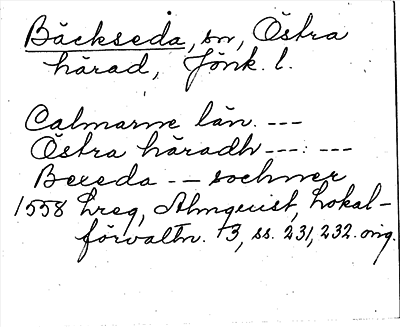 Bäckseda, sn, Östra
härad, Jönk. l.
Calmarne län. ---
Östra häradh ---: ---
Bexeda -- sochner
1558 Lreg, Almquist, Lokal-
förvaltn. 3, ss. 231, 232. orig.